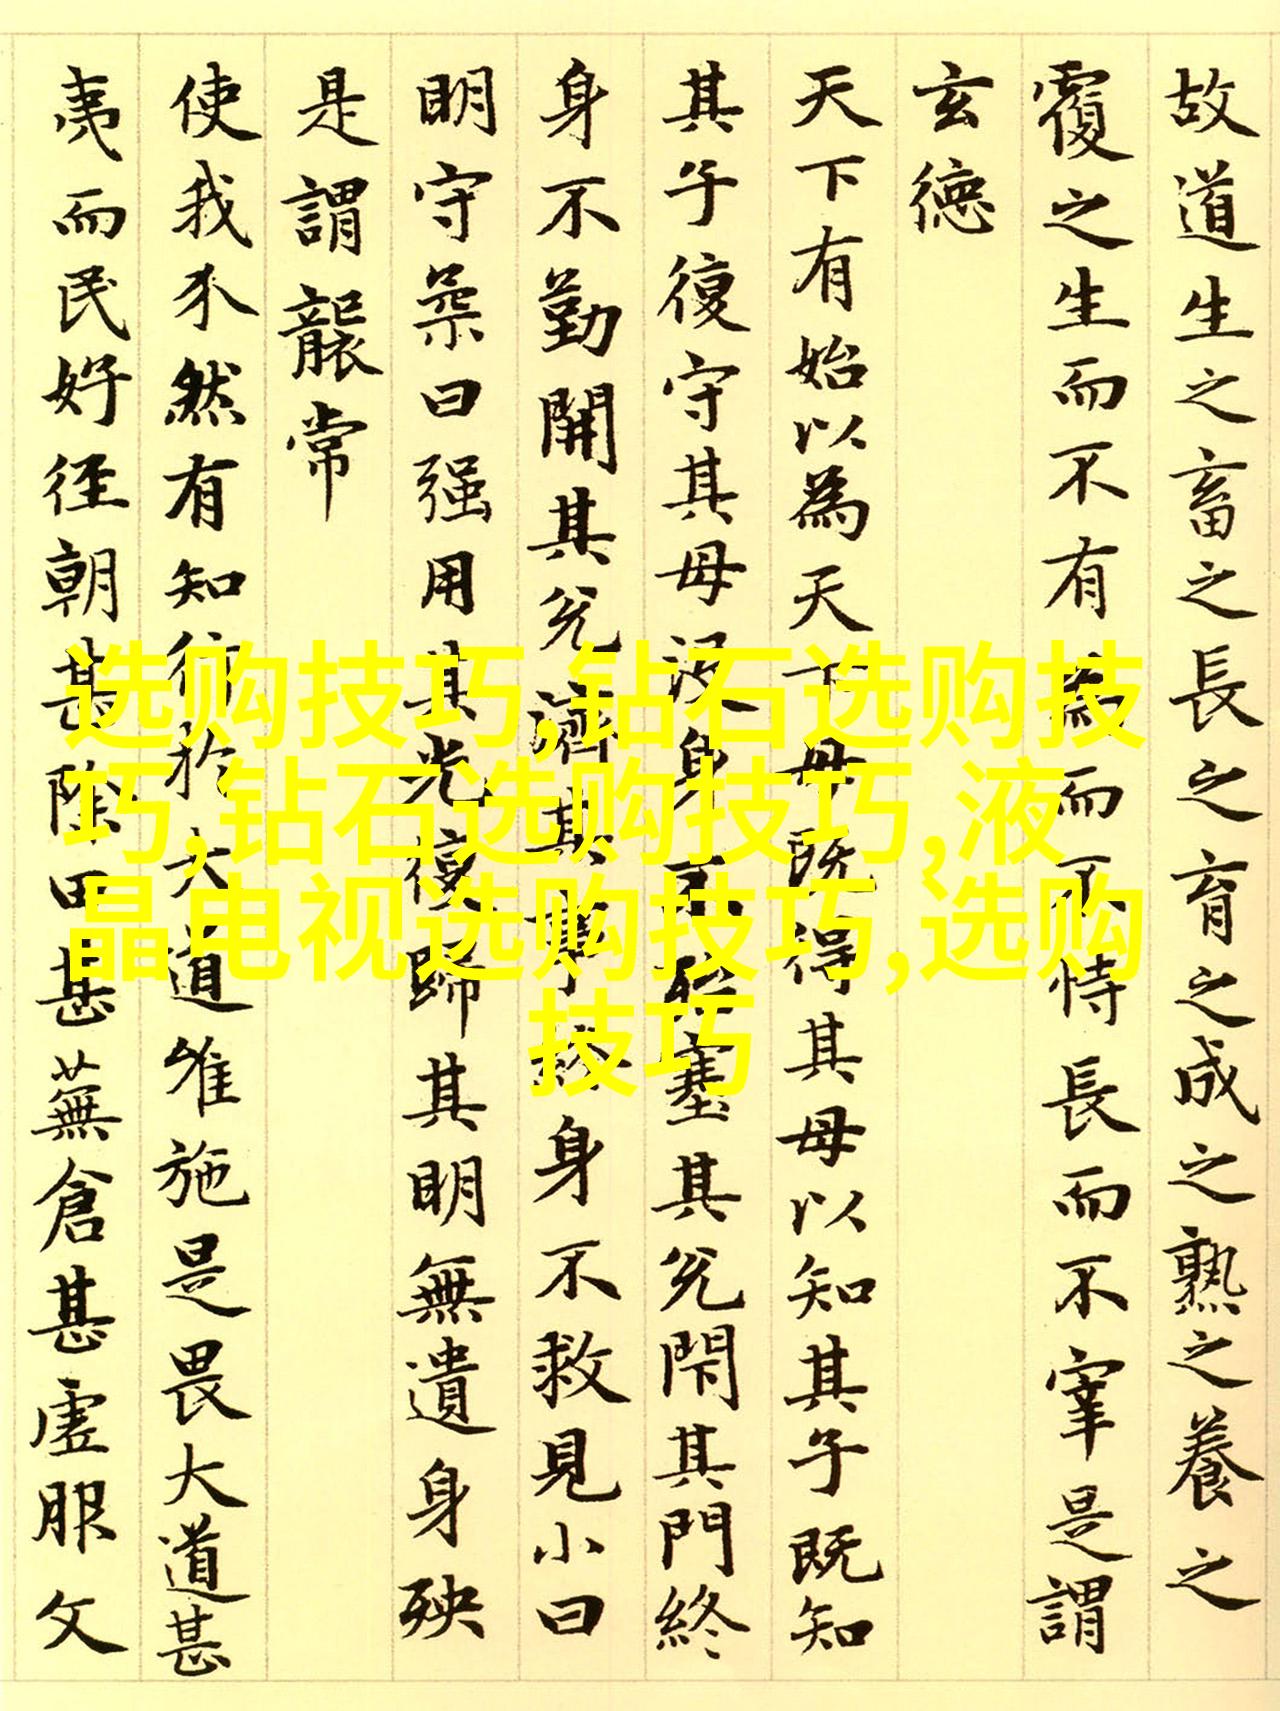 故道生之畜之長之育之成之熟之養之
覆之生而不有為而不恃長而不宰是謂
玄德
天下有始以為天下母既得其母以知其子既知
其子復守其母没身不殆塞其兊閇其門終
身不勤開其兊濟其事終身不救見小曰
明守柔曰强用其光復歸其明無遺身殃
是謂襲常
使我介然有知行於大道唯施是畏大道甚
夷而民好徑朝甚除田甚蕪倉甚虛服文
选购技巧,钻石选购技
巧,钻石选购技巧,液
晶电视选购技巧,选购
技巧